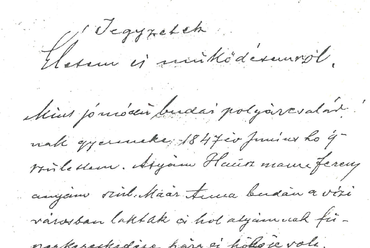 Jegyzetek
Életem és működésemről.
Mint jómódú budai polgárcsalád
nak gyermeke, 1847 év Junius hó 9
születtem. Atyám Ferenc
anyám szül. Maár Anna budán a vizi
városban laktak és hol atyámnak fü-
és háza volt.